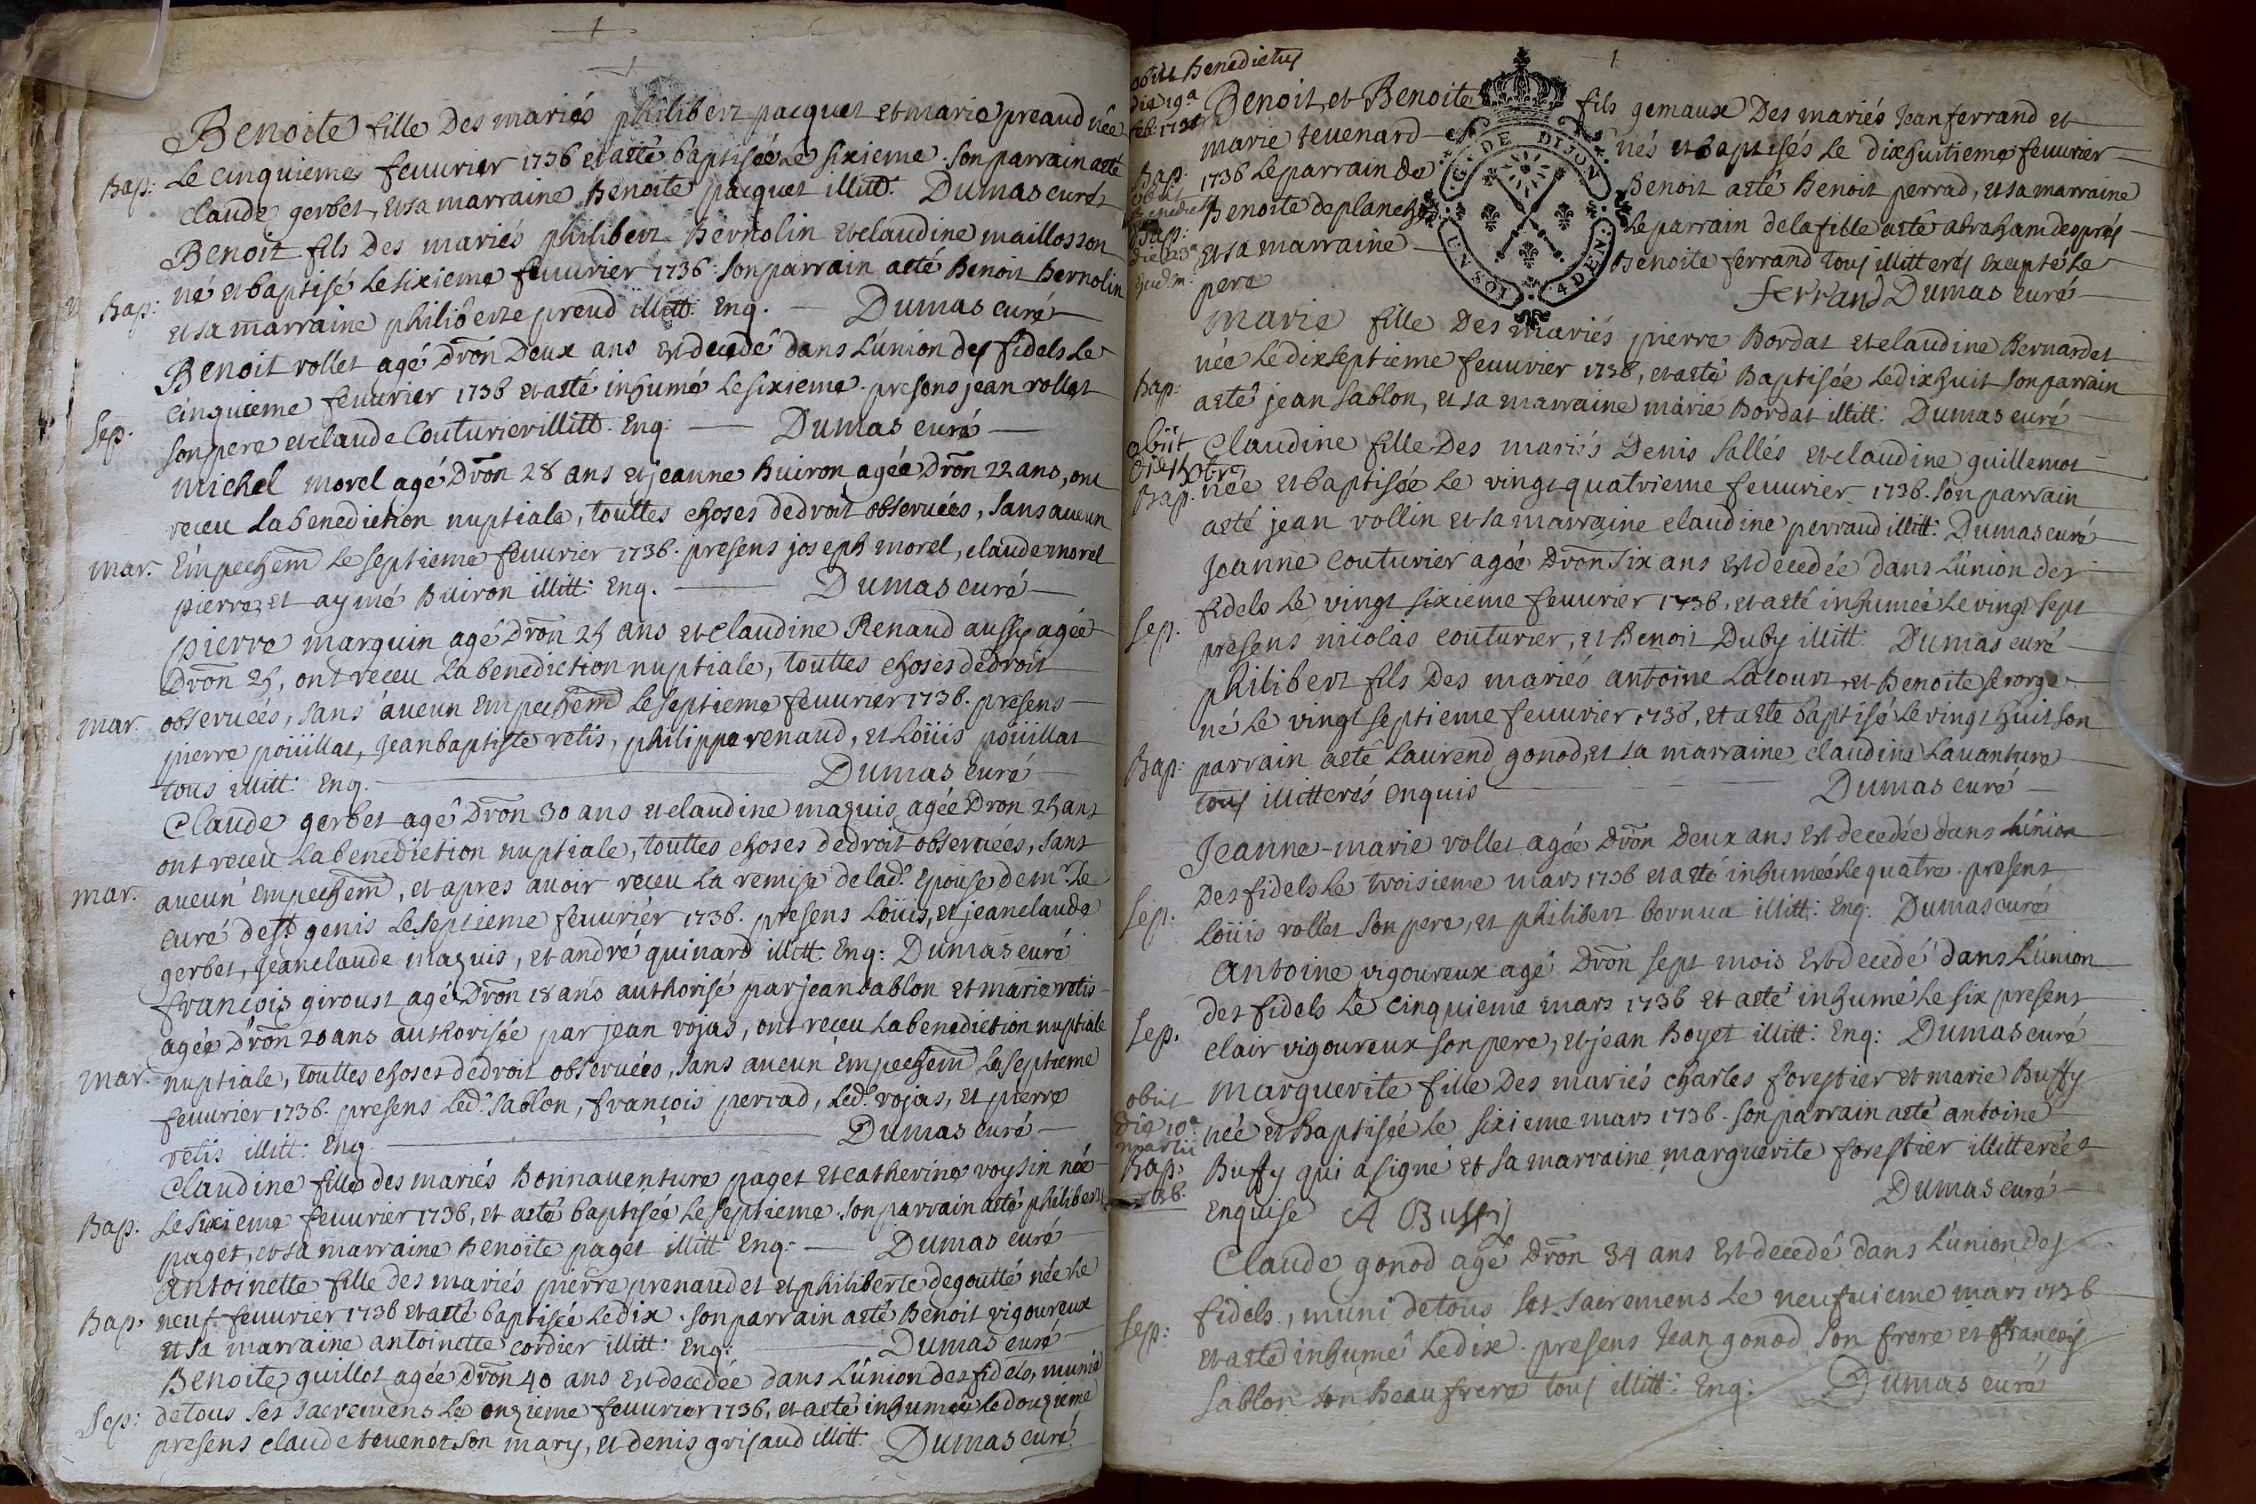 Benoite fille Des mariés philibert pacquet et marie preaud née
Bap: Le cinquieme feuurier 1736 et aeté baptisée Le sixieme. Son parrain aeté
Claude gerbet, et sa marraine Benoite pacquet illitt: Dumas curé
Benoit fils Des mariés philibert Bernolin et claudine maillosson
Bap: né et baptisé Le sixieme feuurier 1736. son parrain aeté Benoit Bernolin
et sa marraine philiberte preud illitt: Enq. Dumas curé
Benoit rollet agé Dron Deux ans Est decedé dans L'union des fidels Le
cinquieme feuurier 1736 et aeté inhumé Le sixieme. presens jean rollet
Sep. son pere et claude Couturier illitt. Enq: Dumas curé
michel morel agé Dron 28 ans et jeanne Buiron agée Dron 22 ans, ont
receu La benediction nuptiale, touttes choses dedroit observées, sans aucun
mar. Empechem Le septieme feuurier 1736. presens joseph morel, claude morel
pierre, et aymé Buiron illitt: Enq. Dumas curé
pierre marguin agé Dron 25 ans et Claudine Renaud aussy agée
Dron 25, ont receu La benediction nuptiale, touttes choses dedroit
mar. observées, sans aucun Empechem Le septieme feuurier 1736. presens
pierre poüillat, jeanbaptiste retis, philippe renaud, et Loüis poüillat
tous illitt: Enq. Dumas curé
Claude gerbet agé Dron 30 ans et claudine mazuis agée Dron 25 ans
ont receu La benediction nuptiale, touttes choses dedroit observées, sans
mar. aucun Empechem, et apres auoir receu La remise delad. Epouse de mr Le
curé de st genis Le septieme feuurier 1736. presens Loüis, et jeanclaude
gerbet, jeanclaude mazuis, et andré quinard illitt: Enq: Dumas curé
françois giroust agé Dron 18 ans authorisé par jean sablon et marie retis
agée Dron 20 ans authorisée par jean rojas, ont receu La benediction nuptiale
mar. nuptiale, touttes choses dedroit observées, sans aucun Empechem Le septieme
feuurier 1736. presens Led. sablon, françois perrad, Led. rojas, et pierre
retis illitt: Enq. Dumas curé
Claudine fille des mariés Bonnauenture paget et catherine voysin née
Bap. Le sixieme feuurier 1736, et aeté baptisée Le septieme. Son parrain aeté philibert
paget, et sa marraine Benoite paget illitt Enq: Dumas curé
antoinette fille des mariés pierre prenaudet et philiberte degoutté née Le
Bap. neuf feuurier 1736 et aeté baptisée Le dix. son parrain aeté Benoit vigoureux
et sa marraine antoinette cordier illitt: Enq: Dumas curé
Benoite guillot agée Dron 40 ans Est decedée dans L'union des fidels, munie
Sep: detous ses sacremens Le onzieme feuurier 1736, et aeté inhumée Le douzieme
presens claude teuenot son mary, et denis grisaud illitt: Dumas curé
1
obiit Benedictus
die 19a
feb: 1736
Benoit et Benoite fils gemaux Des mariés Jean ferrand et
marie teuenard nés et baptisés Le dixhuitieme feuurier
Bap: 1736 Le parrain de Benoit aeté Benoit perrad, et sa marraine
Benoite deplanche Le parrain de la fille aeté abraham desprès
Bap: et sa marraine Benoite ferrand tous illitterés Excepté Le
pere ferrand Dumas curé
G. DE DIJON
4 DEN.
UN SOL
marie fille Des mariés pierre Bordat et claudine Bernardet
née Le dixseptieme feuurier 1736, et aeté Baptisée Le dixhuit son parrain
Bap: aeté jean sablon, et sa marraine marie Bordat illitt: Dumas curé
obiit
Claudine fille Des mariés Denis Sallés et claudine guillemot
Bap. née et baptisée Le vingt quatrieme feuurier 1736. son parrain
aeté jean rollin et sa marraine claudine perraud illitt: Dumas curé
Jeanne couturier agée Dron six ans Est decedée dans L'union des
fidels Le vingt sixieme feuurier 1736, et aeté inhumée Le vingt sept
Sep. presens nicolas couturier, et Benoit Duby illitt: Dumas curé
philibert fils Des mariés antoine Lacourt, et Benoite serorge
né Le vingt septieme feuurier 1736, et aeté baptisé Le vingt huit son
Bap: parrain aeté Laurend gonod, et sa marraine claudine Lauanture
tous illitterés Enquis Dumas curé
Jeanne-marie rollet agée Dron Deux ans Est decedée dans L'union
Des fidels Le troisieme mars 1736 et aeté inhumée Le quatre. presens
Sep. Loüis rollet son pere, et philibert bornua illitt: Enq: Dumas curé
antoine vigoureux agé Dron sept mois Est decedé dans L'union
des fidels Le cinquieme mars 1736 et aeté inhumé Le six presens
Sep. clair vigoureux son pere, et jean Boyet illitt: Enq: Dumas curé
obiit
die 10a
martii
marguerite fille Des mariés charles forestier et marie Buffy
née et baptisée Le sixieme mars 1736. son parrain aeté antoine
Bap. Buffy qui a signé et sa marraine marguerite forestier illitterée
1736. Enquise A Buffy Dumas curé
Claude gonod agé Dron 34 ans Est decedé dans L'union des
fidels, muni detous ses sacremens Le neufuieme mars 1736
Sep: et aeté inhumé Le dix. presens Jean gonod son frere et françois
sablon son Beaufrere tous illitt: Enq: Dumas curé